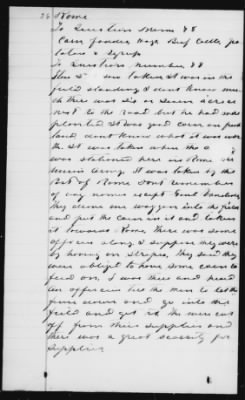 26 Rome
To Question Num 88
Corn fodder Hogs Beef Cattle po
tatoes & Syrup
To Question number 88
When taken it was in the
field standing I dont know mu
ch there was six or seven acres
next to the road but he had
planted it was good corn on
land dont know what it was wor
th it was taken when the
was stationed here in Rome
army. It was taken by the
of Rome I dont remember
of any names except
they drove in waggons into the field
and put the corn in it and taken
it towards Rome there was some
officers along I suppose they were
by having on stripes, they said they
were obliged to have some corn to
feed on, I was there and heard
an officer tell the men to let the
fence down and go into the
field and get it they were cut
off from their supplies and
there was a great scarcity for
supplies